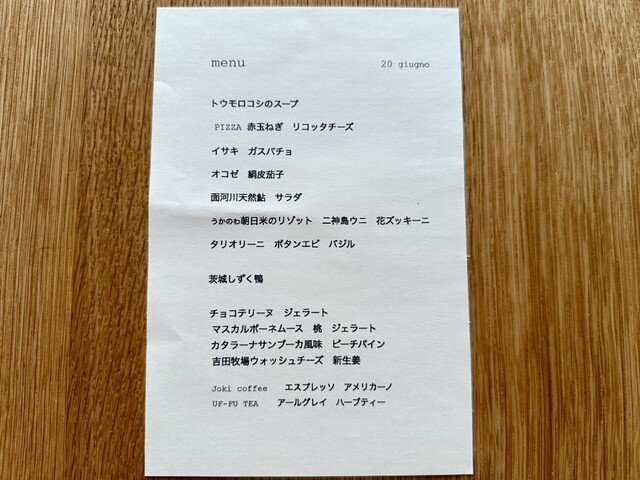 menu 20 giugno
トウモロコシのスープ
PIZZA 赤玉ねぎ リコッタチーズ
イサキ ガスパチョ
オコゼ 絹皮茄子
面河川天然鮎 サラダ
うかのわ朝日米のリゾット 二神島ウニ 花ズッキーニ
タリオリーニ ボタンエビ バジル
茨城しずく鴨
チョコテリーヌ ジェラート
マスカルポーネムース 桃 ジェラート
カタラーナサンブーカ風味 ピーチパイン
吉田牧場ウォッシュチーズ 新生姜
Joki coffee エスプレッソ アメリカーノ
UF-FU TEA アールグレイ ハーブティー